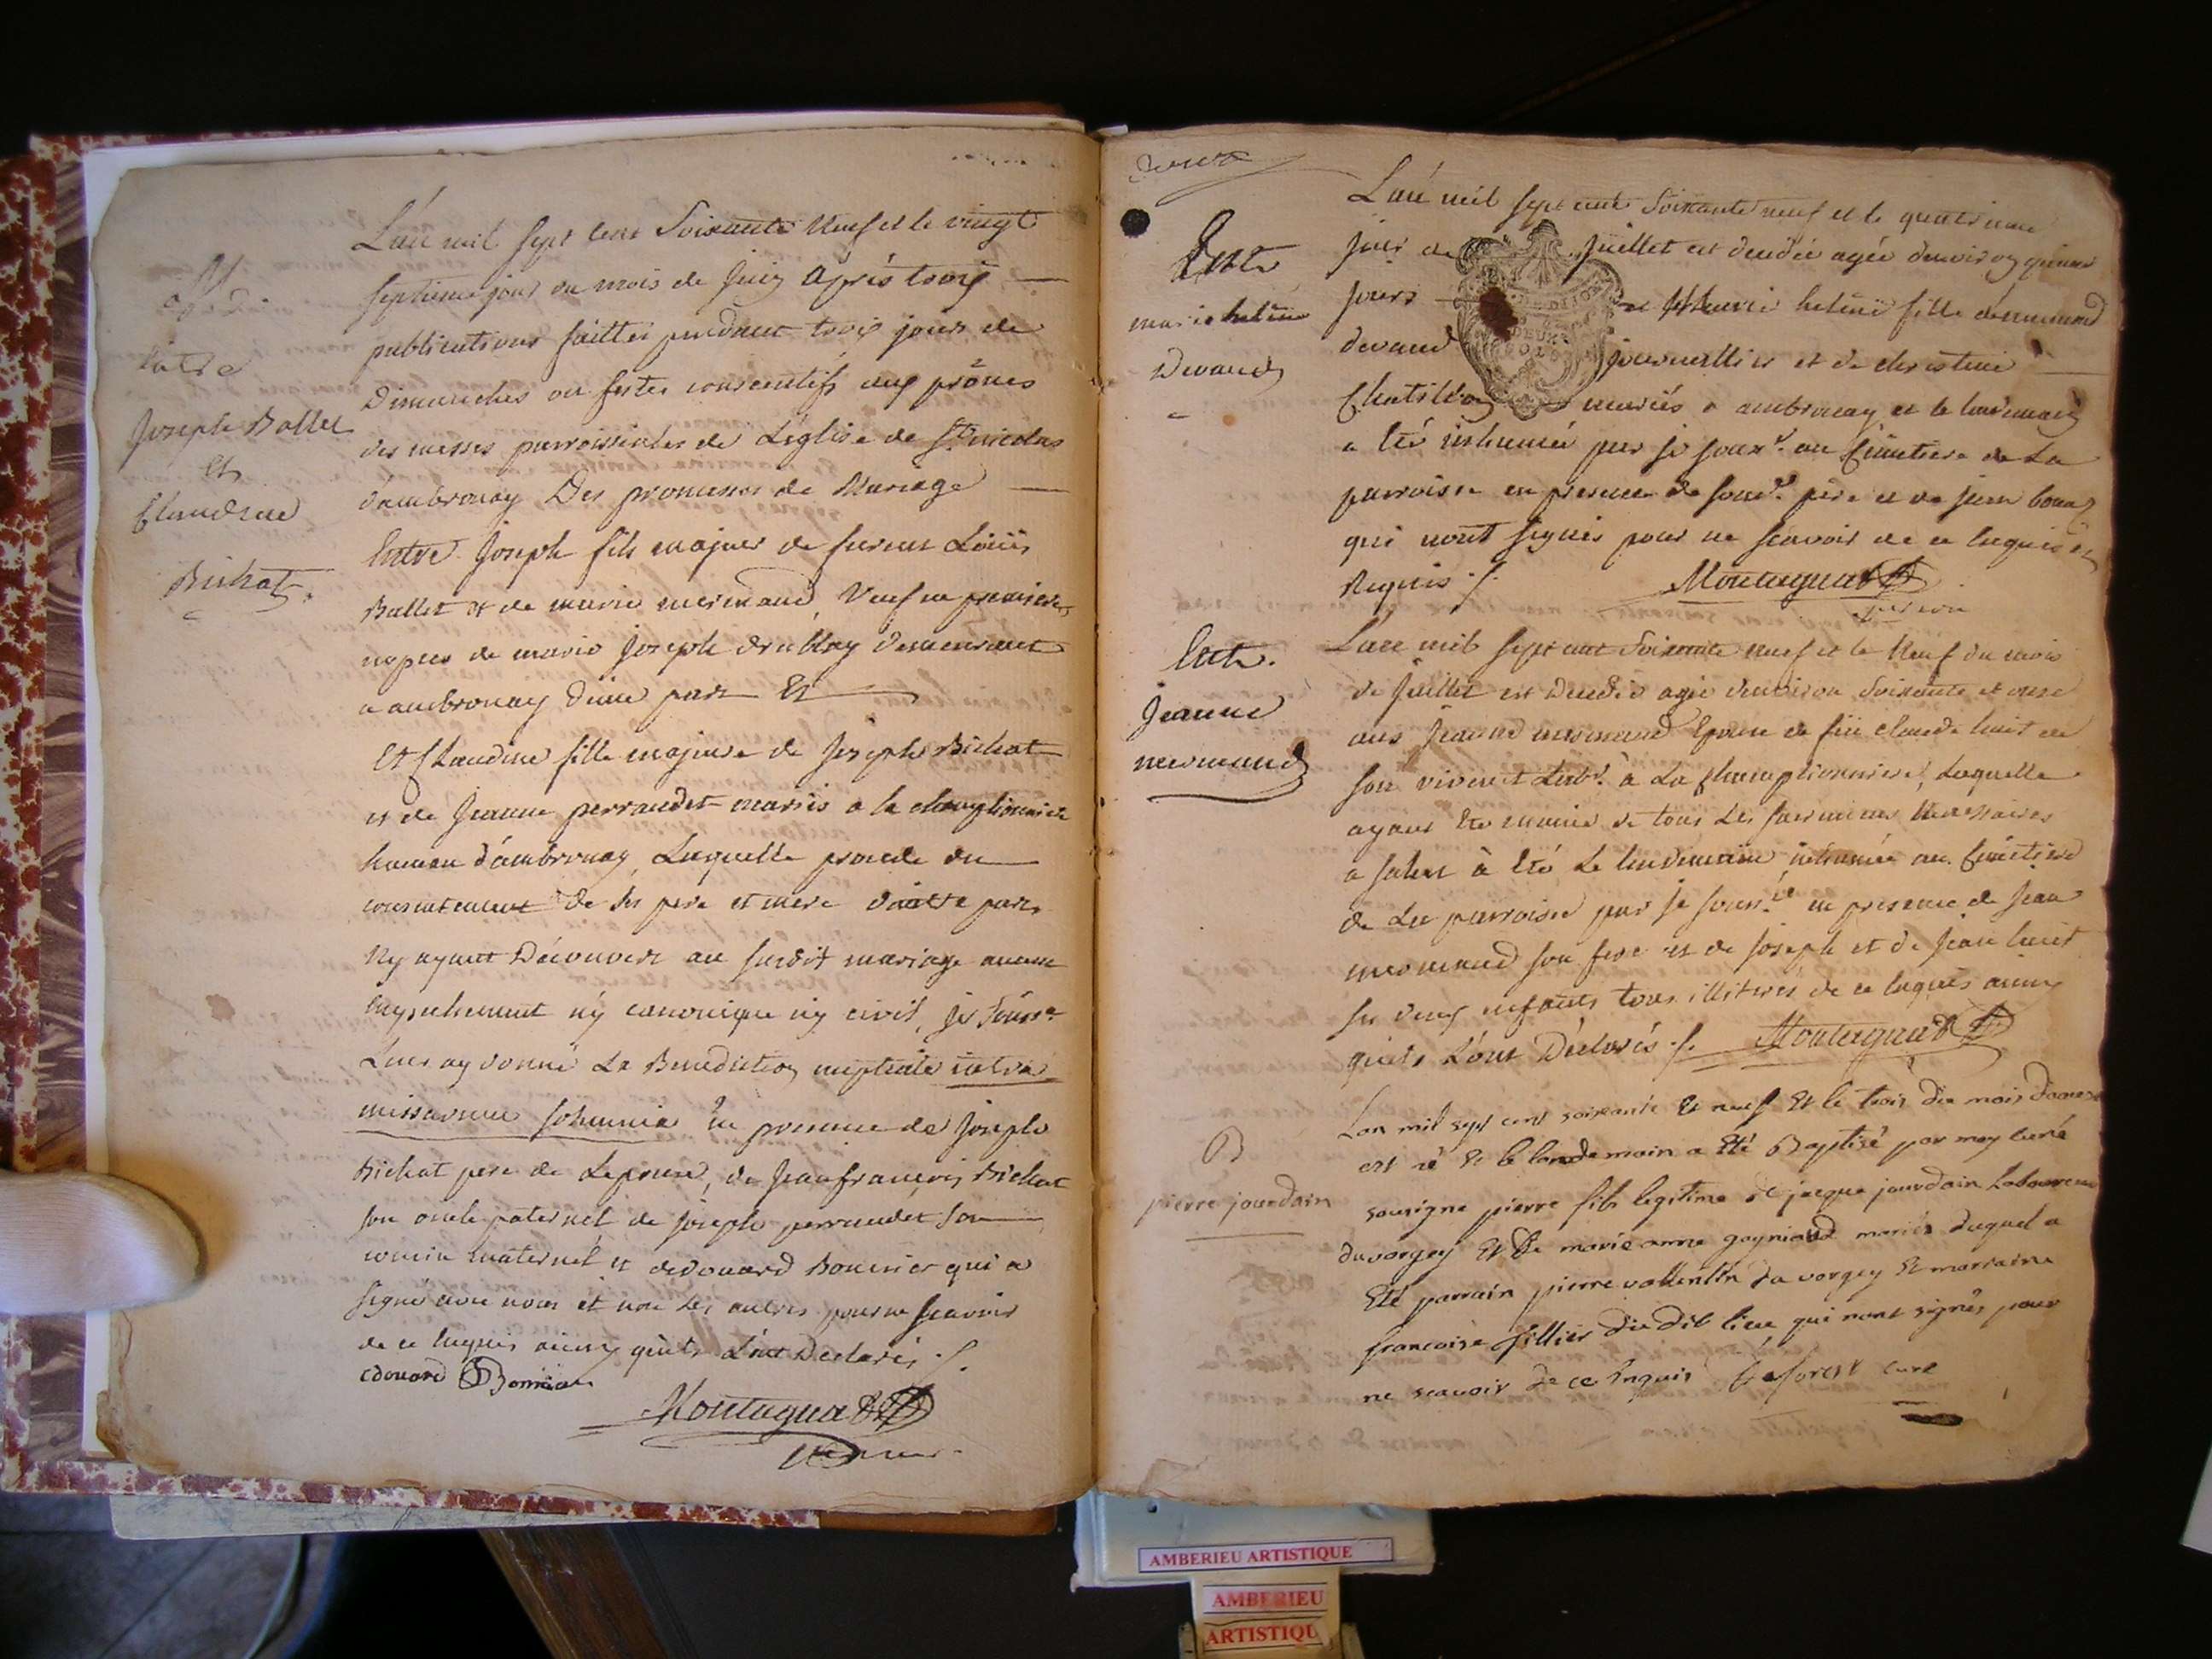 entre
Joseph Ballet
et
Claudine
Bichat
L'an mil sept cent Soixante Neuf et le vingt
septieme jour du mois de Juin Après trois
publications faittes pendant trois jours de
Dimanches ou festes consecutifs aux prônes
des messes parroissiales de L'église de St nicolas
d'ambronay Des promesses de Mariage
Entre Joseph fils majeur de furent Loüis
Ballet et de marie mermand, Veuf en premieres
nopces de marie Joseph demeurant
a ambronay d'une part Et
Et Claudine fille majeure de Joseph Bichat
et de Jeanne perraudet mariés a la championniere
hameau d'ambronay, Laquelle procede du
consentement de ses pere et mere d'autre part,
N'y ayant Découvert au susdit mariage aucun
Empechement n'y canonique n'y civil, je souss.
Leur ay donné La Benediction nuptiale intra
missarum solemnia En presence de Joseph
Bichat pere de Lepouse, de Jean françois Bichat
son oncle paternel de Joseph perraudet son
cousin maternel et dedouard Bonnier qui a
signé avec nous et non les autres pour ne scavoir
de ce Enquis ainsy qu'ils L'ont Declarés ./.
edouard Bonnier
Montagnat
Ent
marie helene
Devaud
L'an mil sept cent Soixante neuf et le quatrieme
jour de Juillet est decedée agée denviron quinze
jours marie helene fille de mermand
devaud journaillier et de christine
Chatillon mariés a ambronay et le lendemain
a été inhumée par je souss. au Cimetiere de La
parroisse en presence de sond. père et de jean
qui n'ont signés pour ne scavoir de ce Enquis et
Requis ./. Montagnat
Ent.
Jeanne
mermand
L'an mil sept cent Soixante neuf et le Neuf du mois
de Juillet est Decedée agée denviron Soixante et onze
ans Jeanne mermand Epouse de feü claude huit de
son vivant Lab. à La Championniere, Laquelle
ayant Eté munie de tous Les sacremens Necessaires
a salut à Eté Le lendemain inhumée au Cimetiere
de La parroisse par je souss. en presence de Jean
mermand son frere et de Joseph et de Jean huit
ses deux enfants tous illitérés de ce Enquis ainsy
qu'ils L'ont Déclarés ./. Montagnat
B
pierre jourdain
Lan mil sept cent soixante Et neuf Et le trois du mois daoust
est né Et le landemain a Eté Baptisé par moy curé
sousigne pierre fils legitime de jacque jourdain Laboureur
du vorgey Et De marie anne gagniaud mariés duquel a
Eté parrain pierre vallentin du vorgey Et marraine
francoise fillier du dit lieu qui nont signés pour
ne scavoir de ce Enquis Laforest curé
AMBERIEU ARTISTIQUE
AMBERIEU
ARTISTIQU